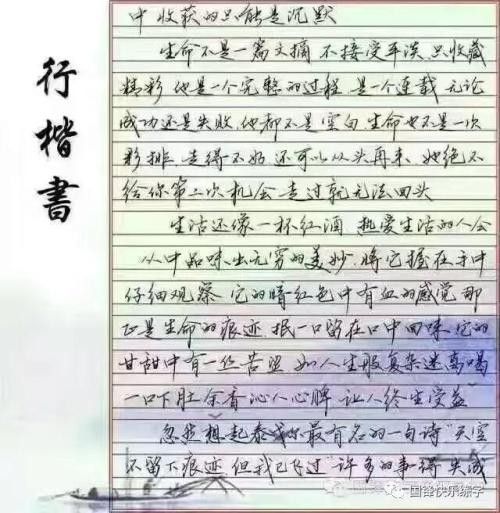 行楷書
中收获的只能是沉默
生命不是一篇文摘 不接受平淡 只收藏
精彩 他是一个完整的过程 是一个连载 无论
成功还是失败 他都不是空白 生命也不是一次
彩排 走得不好 还可以从头再来 她绝不
给你第二次机会 走过就无法回头
生活还像一杯红酒 热爱生活的人会
从中品味出无穷的美妙 将它握在手中
仔细观察 它的暗红色中有血的感觉 那
正是生命的痕迹 抿一口留在口中回味 它的
甘甜中有一丝苦涩 如人生般复杂迷离 喝
一口下肚 余香沁人心脾 让人终生受益
忽然想起泰戈尔最有名的一句诗“天空
不留下痕迹 但我已飞过”许多的事 得 失 成
国锋快乐练字